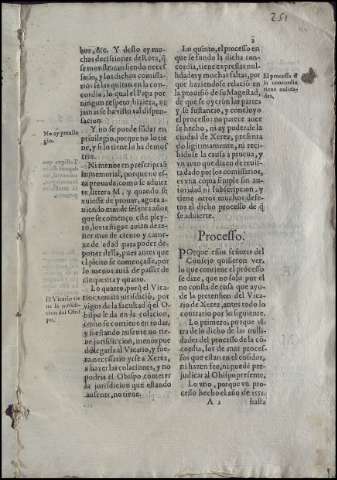 251
2
bus, &c. Y desto ay mu-
chas decisiones de Rota, q̃
se mostraran siendo neces-
sario, y los dichos comissa-
rios se las quitan en la con-
cordia, lo qual el Papa por
ningun respeto hiziera, ni
jamas se ha visto tal dispen-
sacion.
No ay preuile
gio.
Y no se puede fũdar en
priuilegio, porque no lo tie
ne, y si lo tiene lo ha de mos
trar.
Ni menos en prescripciõ
immemorial, porque no es-
ta prouada, como se aduier
te, littera M, y quando se
vuiesse de prouar, agora a-
uiendo mas de sesenta años
que se començo este pley-
to, los testigos auian de te-
ner mas de ciento y cator-
ze de edad para poder de-
poner desta, pues antes que
el pleito se començasse, por
lo menos auiã de passar de
cinquenta y quatro.
El Vicario tie-
ne la jurisdi-
cion del Obis
po.
Lo quarto, porq̃ el Vica-
rio con tal jurisdicion, por
vigor de la facultad q̃ el O-
bispo le da en la colacion,
como se contiene en todas,
y fue estando ausente no tie-
ne jurisdicion, menos pue
de delegarla al Vicario, y fue-
ra necessario yrse a Xerez,
a hazer las colaciones, y no
podria el Obispo cometer
la jurisdicion que estando
ausente, no tiene.
Lo quinto, el processo en
que se funda la dicha con-
cordia, tiene expressas nuli-
dades y muchas faltas, por
que haziendose relacio en
la prouision de su Magestad,
de que se oyeron las partes
y se sustancio, y concluyo
el processo: no parece auer
se hecho, ni ay poder de la
ciudad de Xerez, presenta
do legitimamente, ni reci-
bido se la causa a prueua, y
vn auto que dizen de circũ-
citado por los comissarios,
es vna copia simple sin au-
toridad, ni subscripcion, y
tiene otros muchos defec-
tos el dicho processo de q̃
se aduierte.
El processo d̃
la concordia
tiene nulida-
des.
Processo.
POrque essos señores del
Consejo quisieron ver
lo que contiene el processo
se dize, que no solo por el
no consta de cosa que ayu-
de la pretension del Vica-
rio de Xerez, antes todo lo
contrario por lo siguiente.
Lo primero, porque vl-
tra de lo dicho de las nuli-
dades del processo de la cõ-
cordia, los de mas proces-
sos que estan en el cosidos,
ni hazen fee, ni puedẽ pre-
judicar al Obispo presente.
Lo vno, porque vn pro-
cesso hecho el año de 1551.
A 2
hasta